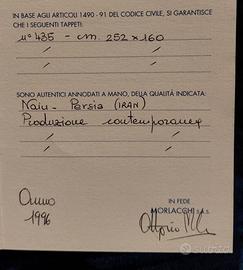 IN BASE AGLI ARTICOLI 1490 - 91 DEL CODICE CIVILE, SI GARANTISCE
CHE I SEGUENTI TAPPETI:
n° 435 - cm. 252 x 160
SONO AUTENTICI ANNODATI A MANO, DELLA QUALITÁ INDICATA:
Nain - Persia (IRAN)
Produzione contemporanea
Anno
1996
IN FEDE
MORLACCHI S.A.S.